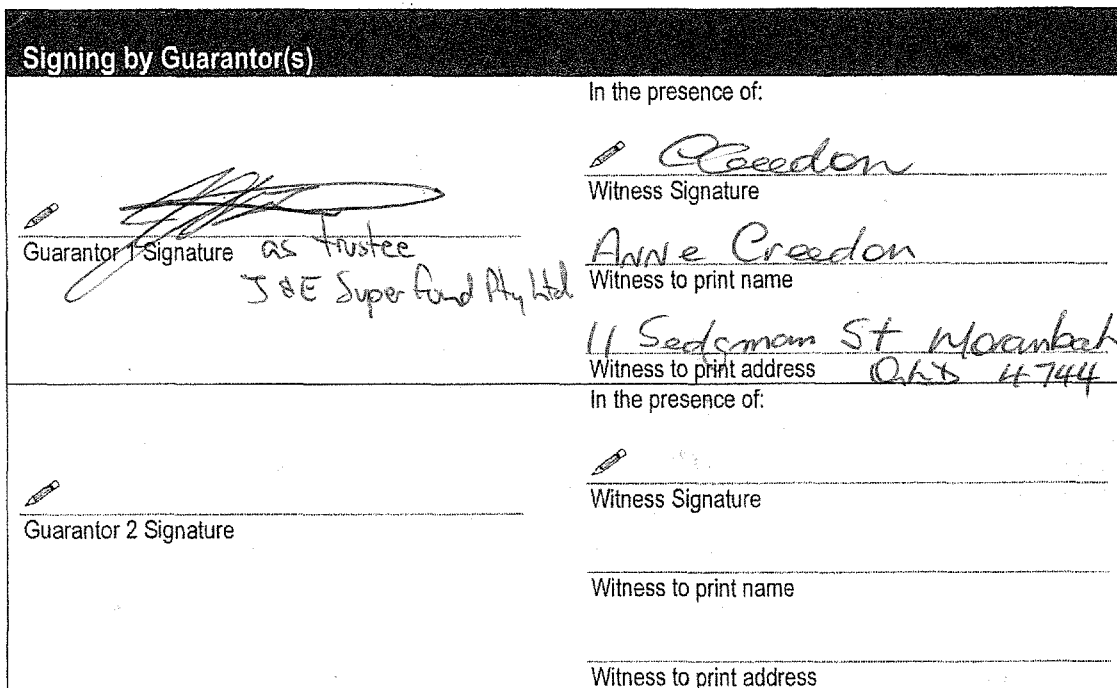 Signing by Guarantor(s)
Guarantor 1 Signature as trustee
J & E Super Fund Pty Ltd
In the presence of:
Creedon
Witness Signature
Anne Creedon
Witness to print name
11 Sedgman St Moranbah
Witness to print address QLD 4744
Guarantor 2 Signature
In the presence of:
Witness Signature
Witness to print name
Witness to print address